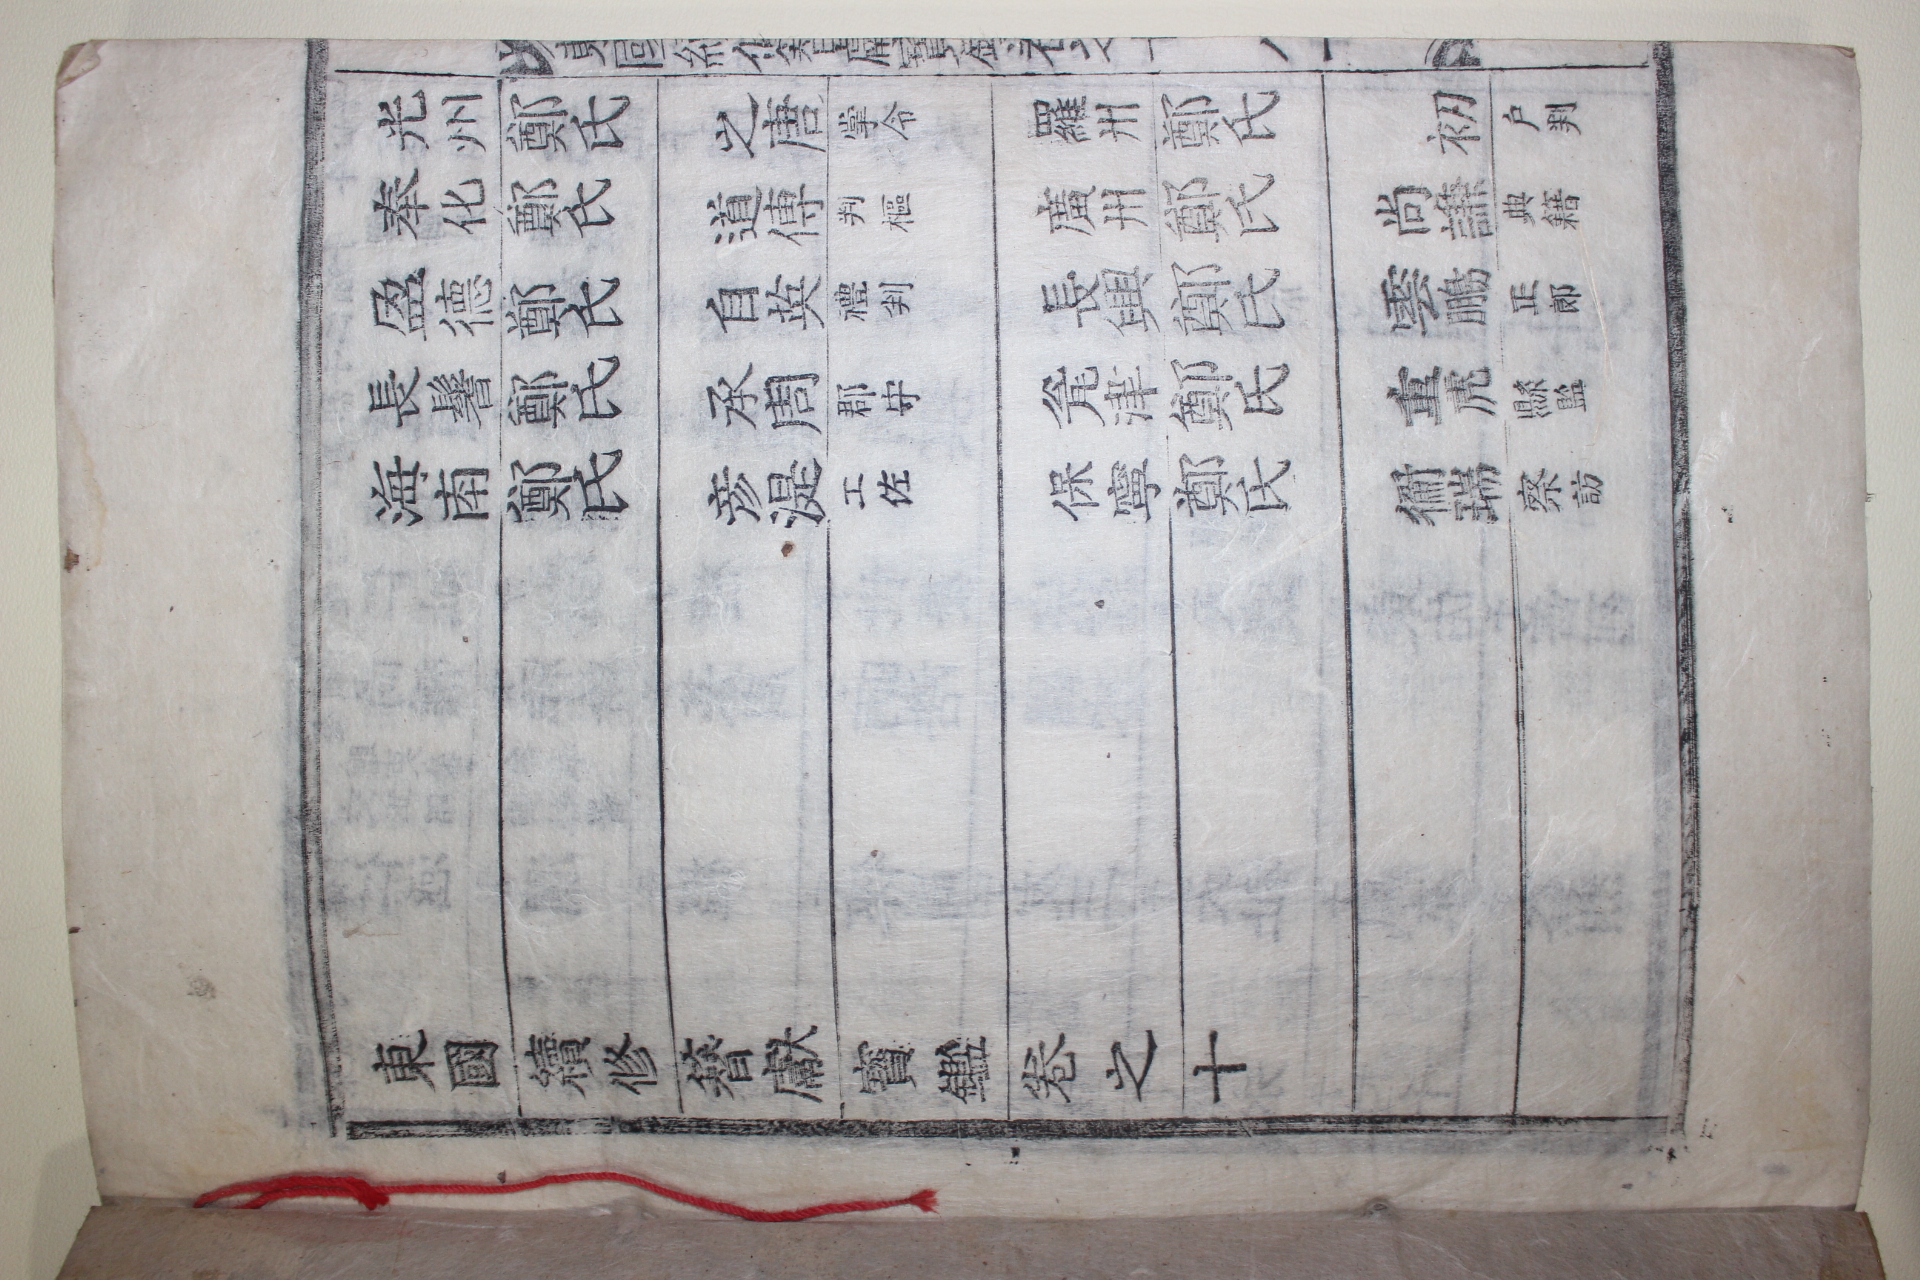 光州鄭氏 之唐 掌令 羅州鄭氏 初 戶判
奉化鄭氏 道傳 判樞 廣州鄭氏 尚 典籍
盈德鄭氏 自英 禮判 長興鄭氏 雲鵬 正郞
長鬐鄭氏 承周 郡守 瓮津鄭氏 重虎 縣監
海南鄭氏 彦湜 工佐 保寧鄭氏 瑞 察訪
東國續修簪獻寶鑑卷之十